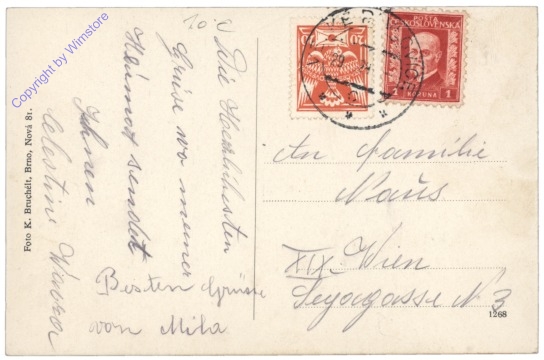 Copyright by Wimstore
Foto K. Bruchélt, Brno, Nová 81.
Die Herzlichsten
Grüse wo meiner
Heimat sendet
Ihnen
Celestine Wawror
Besten Grüsse
von Mila
20
20
POŠTA
ČESKOSLOVENSKÁ
1 KORUNA 1
An Familie
Naùs
XIX Wien
N 3
1268